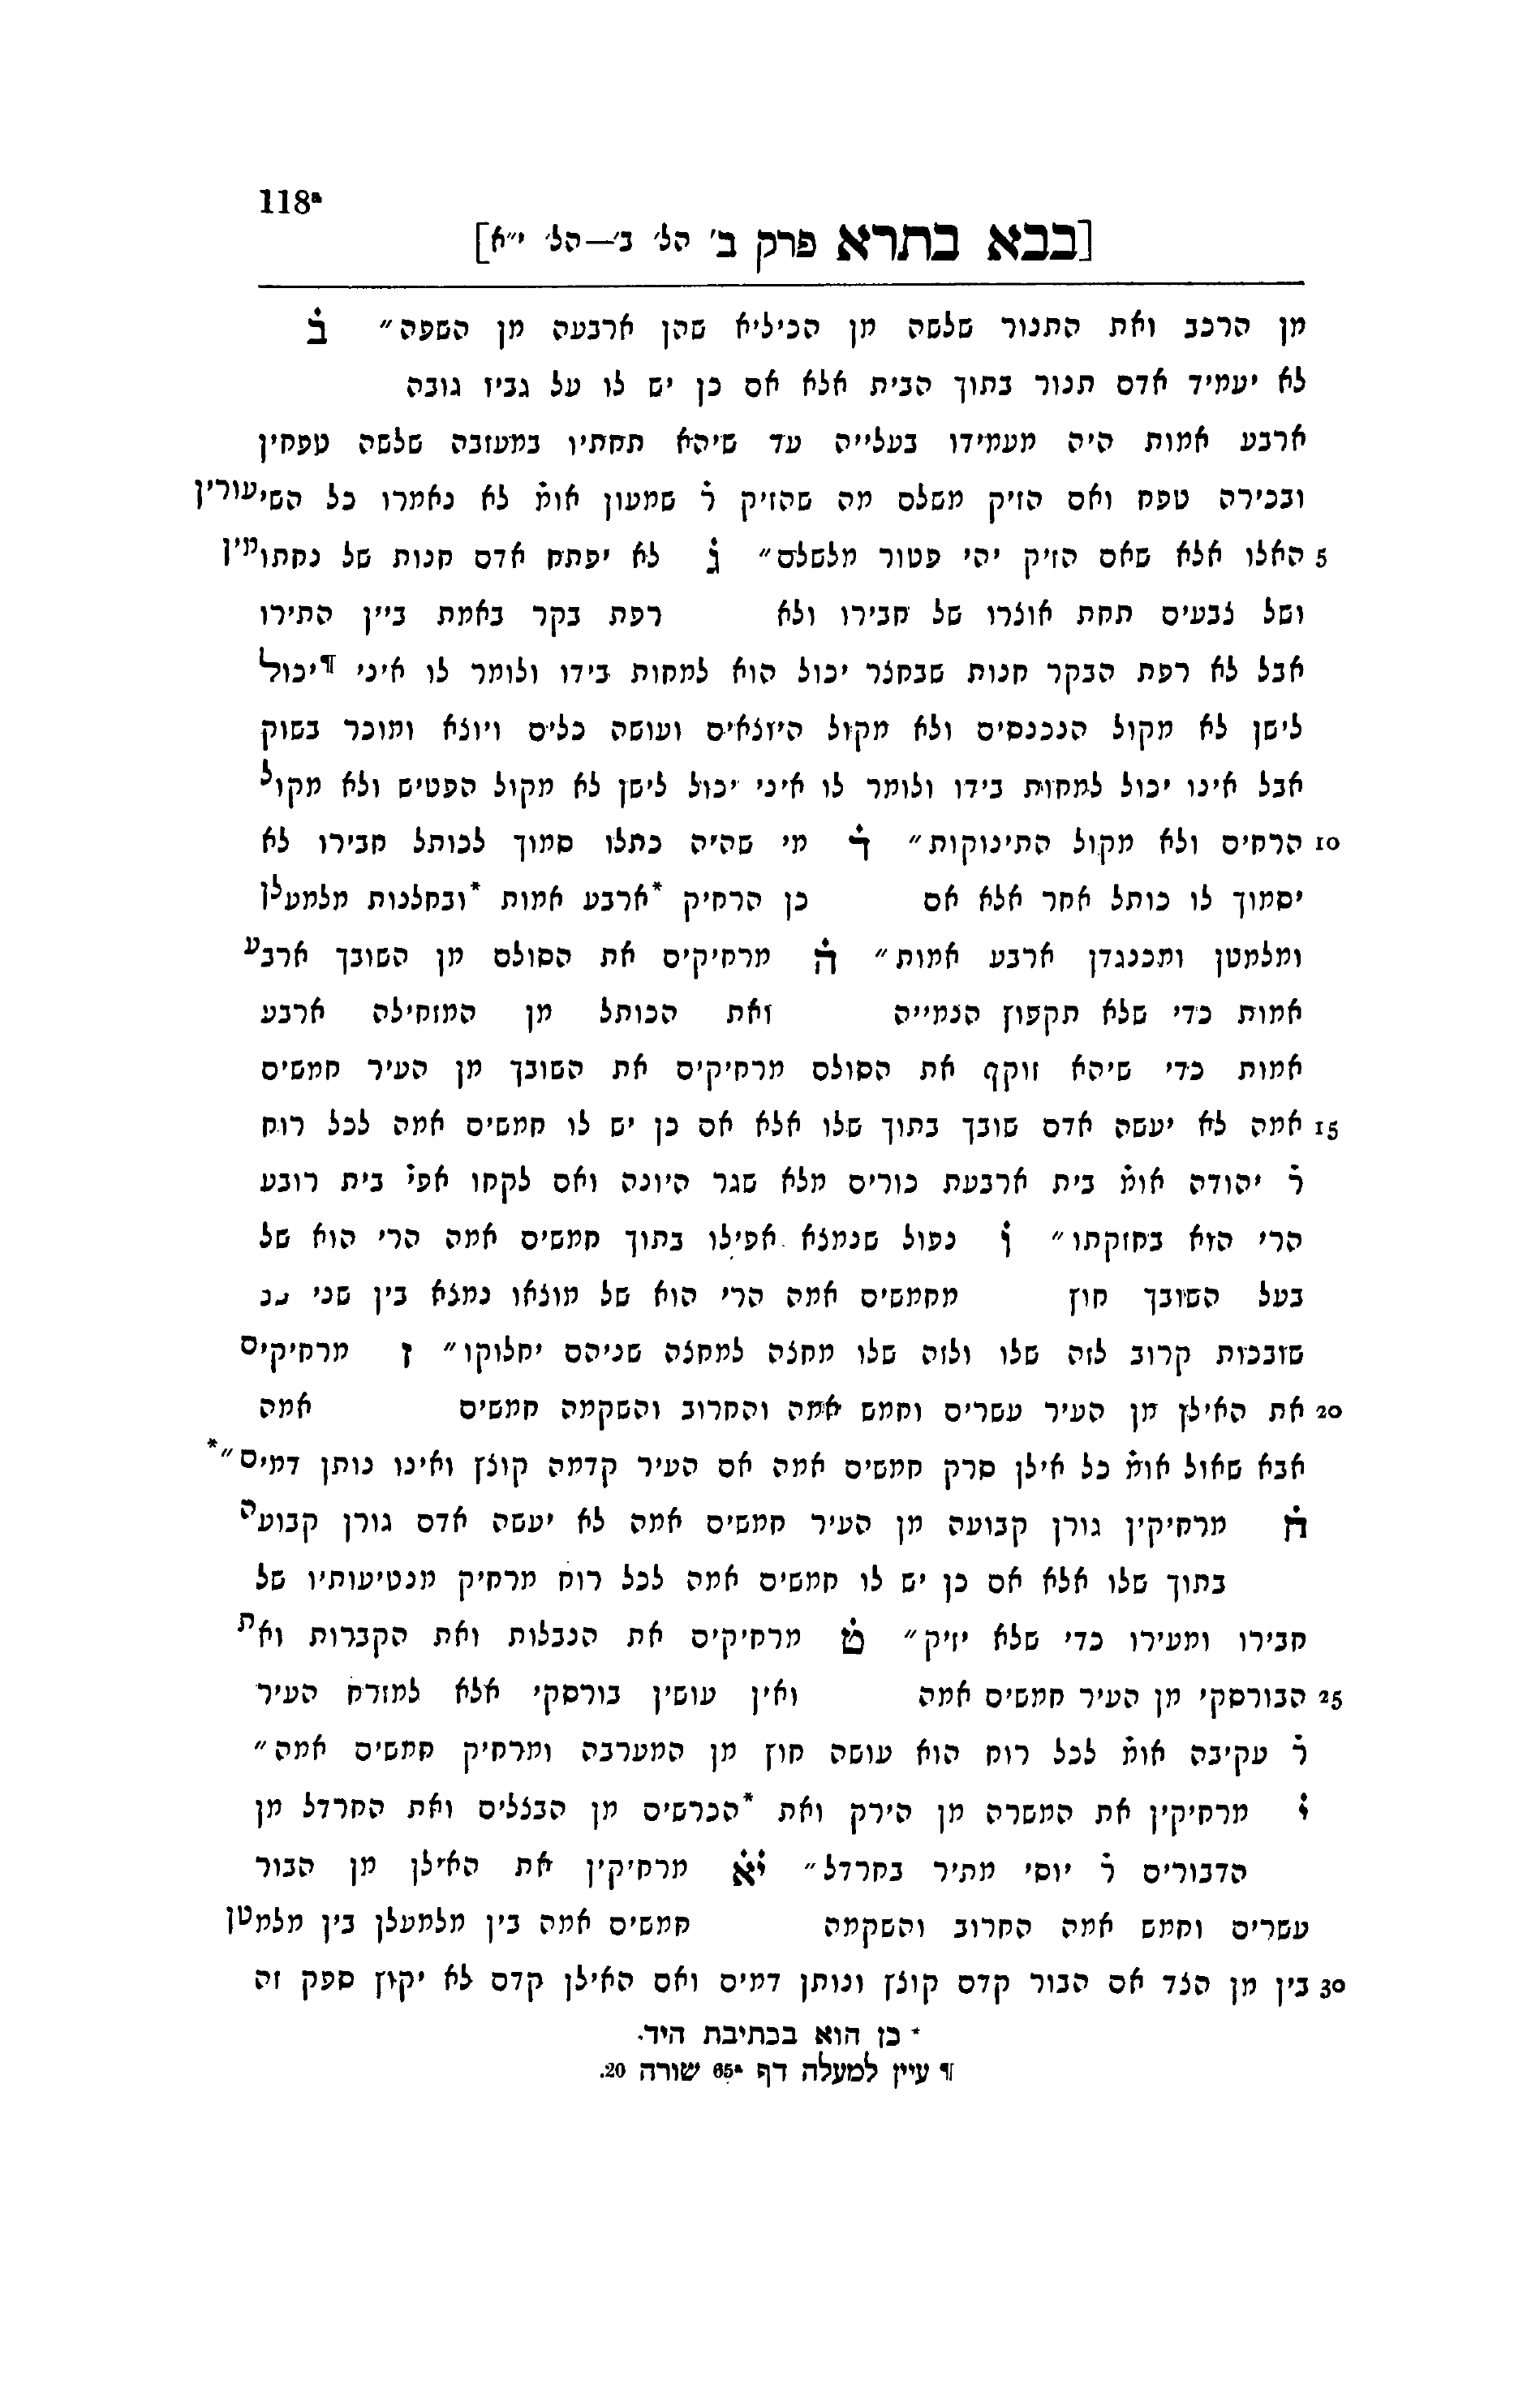 118ª
[בבא בתרא פרק ב' הל' ב'—הל' י״א]
מן הרכב ואת התנור שלשה מן הכיליא שהן ארבעה מן השפה״ ב
לא יעמיד אדם תנור בתוך הבית אלא אם כן יש לו על גביז גובה
ארבע אמות היה מעמידו בעלייה עד שיהא תחתיו במעזבה שלשה טפחין
ובכירה טפח ואם הזיק משלם מה שהזיק ר̇ שמעון אומ̇ לא נאמרו כל השיעורין
5 האלו אלא שאם הזיק יהי פטור מלשלם״ ג לא יפתח אדם חנות של נחתומין
ושל צבעים תחת אוצרו של חבירו ולא רפת בקר באמת ביין התירו
אבל לא רפת הבקר חנות שבחצר יכול הוא למחות בידו ולומר לו איני ¶יכול
לישן לא מקול הנכנסים ולא מקול היוצאים ועושה כלים ויוצא ומוכר בשוק
אבל אינו יכול למחות בידו ולומר לו איני יכול לישן לא מקול הפטיש ולא מקול
10 הרחים ולא מקול התינוקות״ ד מי שהיה כתלו סמוך לכותל חבירו לא
יסמוך לו כותל אחר אלא אם כן הרחיק *ארבע אמות *ובחלנות מלמעלן
ומלמטן ומכנגדן ארבע אמות״ ה מרחיקים את הסולם מן השובך ארבע
אמות כדי שלא תקפוץ הנמייה ואת הכותל מן המזחילה ארבע
אמות כדי שיהא זוקף את הסולם מרחיקים את השובך מן העיר חמשים
15 אמה לא יעשה אדם שובך בתוך שלו אלא אם כן יש לו חמשים אמה לכל רוח
ר̇ יהודה אומ̇ בית ארבעת כורים מלא שגר היונה ואם לקחו אפי̇ בית רובע
הרי הוא בחזקתו״ ו נפול שנמצא אפילו בתוך חמשים אמה הרי הוא של
בעל השובך חוץ מחמשים אמה הרי הוא של מוצאו נמצא בין שני
שובכות קרוב לזה שלו ולזה שלו מחצה למחצה שניהם יחלוקו״ ז מרחיקים
20 את האילן מן העיר עשרים וחמש אמה והחרוב והשקמה חמשים אמה
אבא שאול אומ̇ כל אילן סרק חמשים אמה אם העיר קדמה קוצץ ואינו נותן דמים״*
ח מרחיקין גורן קבועה מן העיר חמשים אמה לא יעשה אדם גורן קבועה
בתוך שלו אלא אם כן יש לו חמשים אמה לכל רוח מרחיק מנטיעותיו של
חבירו ומעירו כדי שלא יזיק״ ט מרחיקים את הנבלות ואת הקברות ואת
25 הבורסקי מן העיר חמשים אמה ואין עושין בורסקי אלא למזרח העיר
ר̇ עקיבה אומ̇ לכל רוח הוא עושה חוץ מן המערבה ומרחיק חמשים אמה״
י מרחיקין את המשרה מן הירק ואת *הכרשים מן הבצלים ואת החרדל מן
הדבורים ר̇ יוסי מתיר בחרדל״ יא מרחיקין את האילן מן הבור
עשרים וחמש אמה החרוב והשקמה חמשים אמה בין מלמעלן בין מלמטן
30 בין מן הצד אם הבור קדם קוצץ ונותן דמים ואם האילן קדם לא יקוץ ספק זה
* כן הוא בכתיבת היד.
¶ עיין למעלה דף 65ª שורה 20.